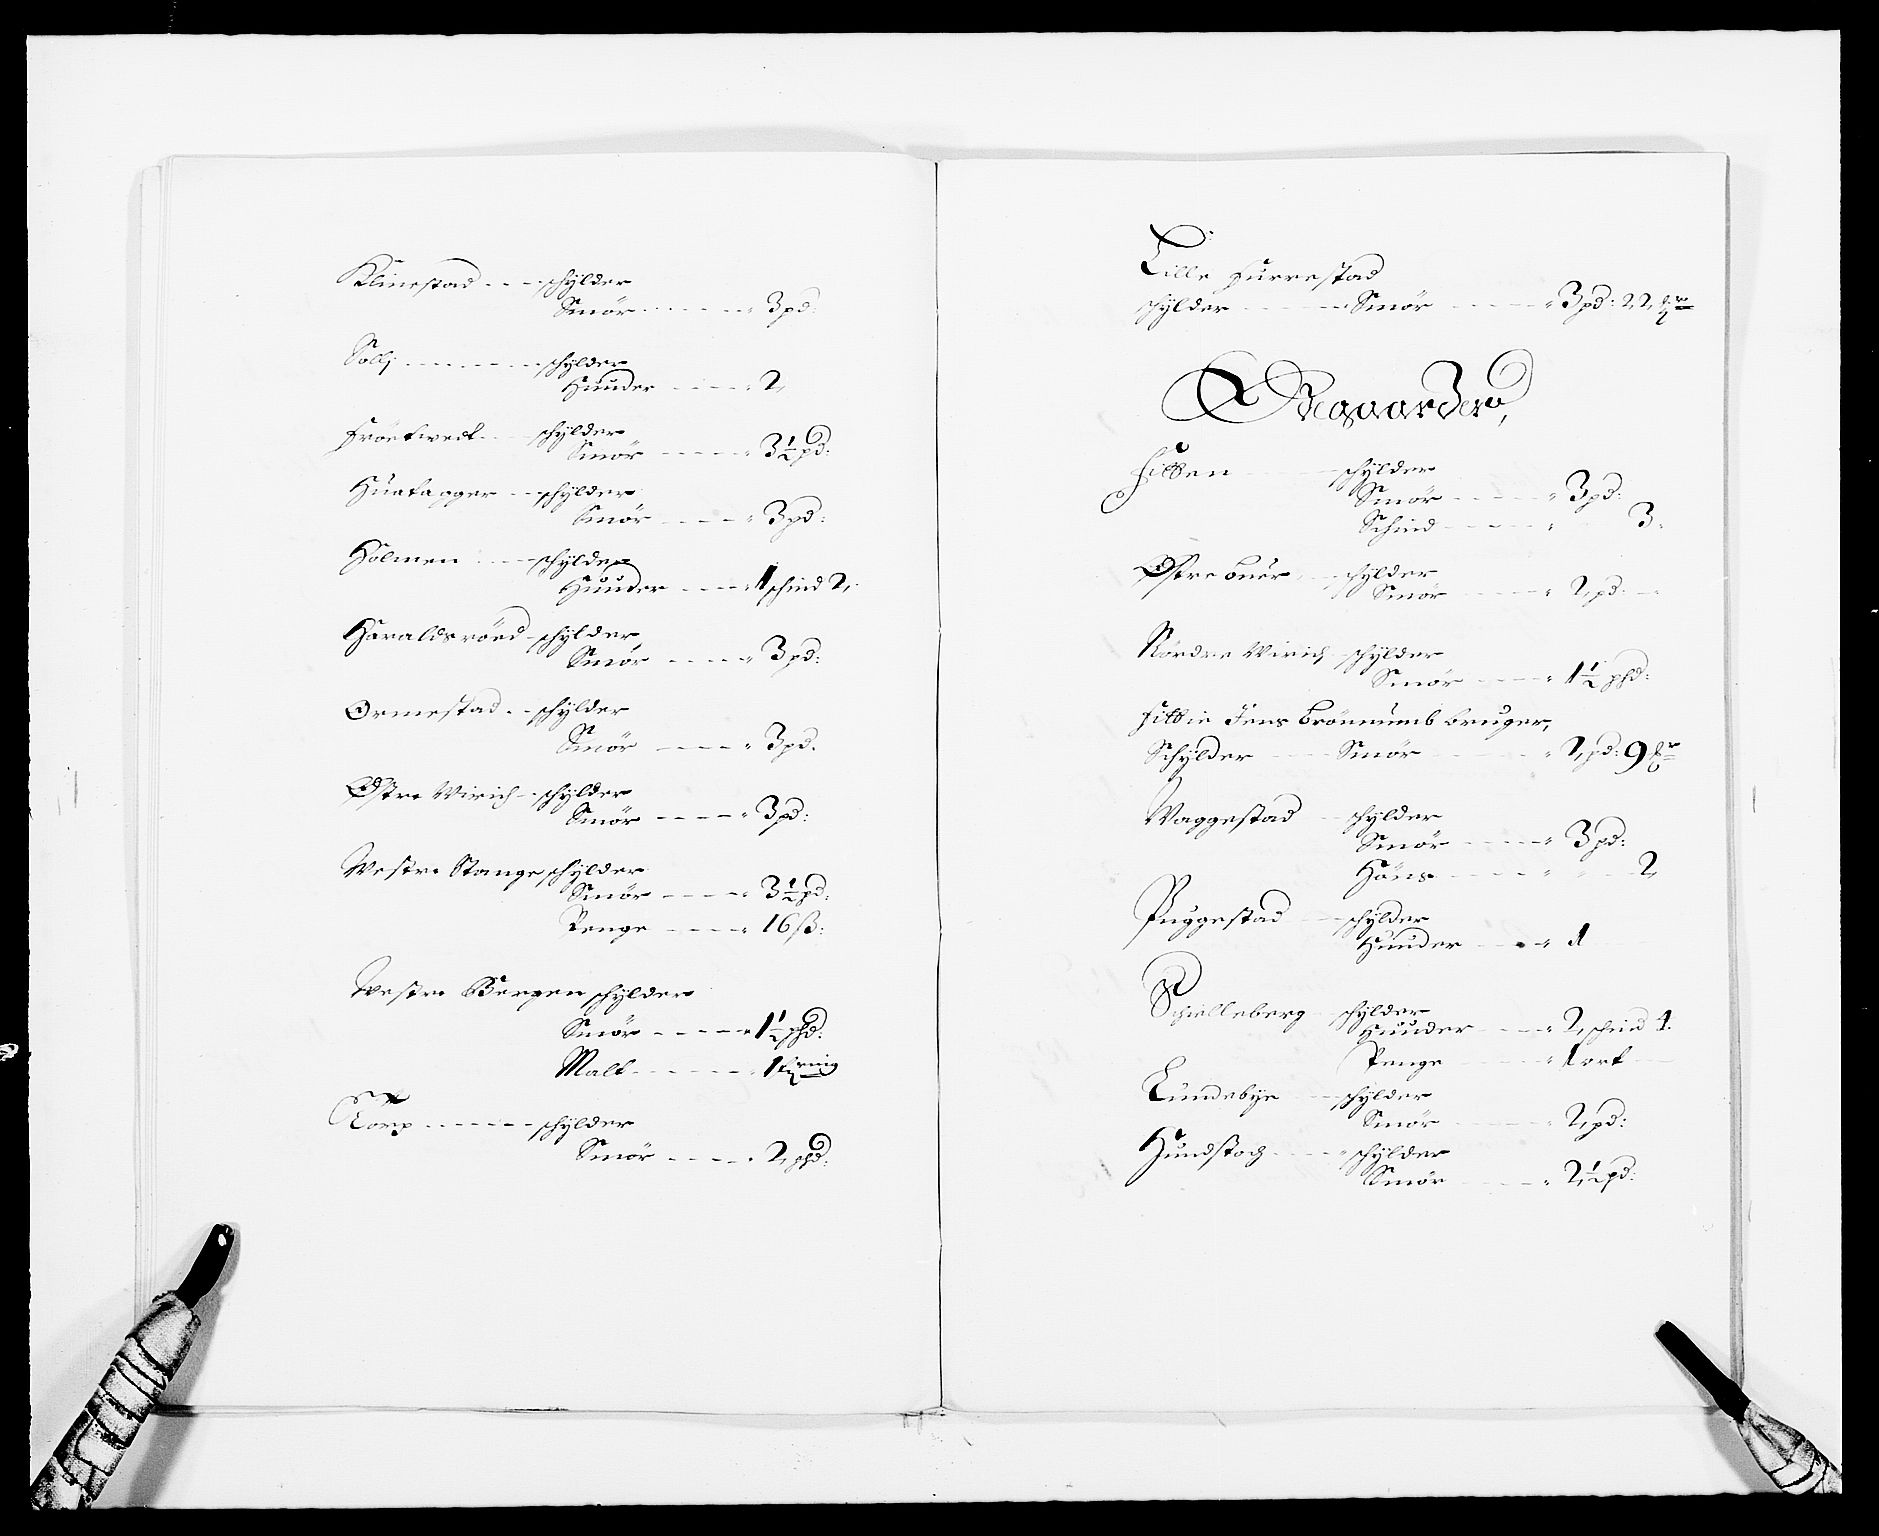 Klinestad - - - schylder
Smör - - - - - - 3 pd:
Solli - - - - - - schylder
Huuder - - - - 2,
Fröetvedt - - - schylder
Smör - - - - - 3½ pd:
Huataager - - schylder
Smör - - - - - 3 pd:
Holmen - - - schylder
Huuder - - - - 1 schind 2,
Haraldsröed - schylder
Smör - - - - - 3 pd:
Ormestad - - schylder
Smör - - - - - 3 pd.
Østre Virich - schylder
Smör - - - - - 3 pd:
Westre Stange schylder
Smör - - - - - 3½ pd:
Penge - - - - 16 ß:
Westre Bergen schylder
Smör - - - - - 1½ phd:
Malt - - - - - 1
Torp - - - - - - schylder
Smör - - - - - 2, phd:
Lille Furrestad
schylder - - - - Smör - - - - - 3 pd: 22
Ødegaarder,
schylder
Smör - - - - 3 pd:
Schind - - - - 3 -
Østre Buer - - schylder
Smör - - - - 2, pd: -
Nördre Wirich - schylder
Smör - - - - 1½ phd:
Jens Brönnumb bruger,
Schylder - - - Smör - - - - - 2, pd: 9
Waggestad - - schylder
Smör - - - - 3 pd:
Höns - - - - - 2,
Puggestad - - schylder
Huuder - - - 1
Schielleberg - schylder
Huuder - - - 2, schind 4.
Penge - - - - 1 ort
Lundebye - - schylder
Smör - - - - 2, pd:
Hundstoch - - - schylder
Smör - - - - 2½ pd: